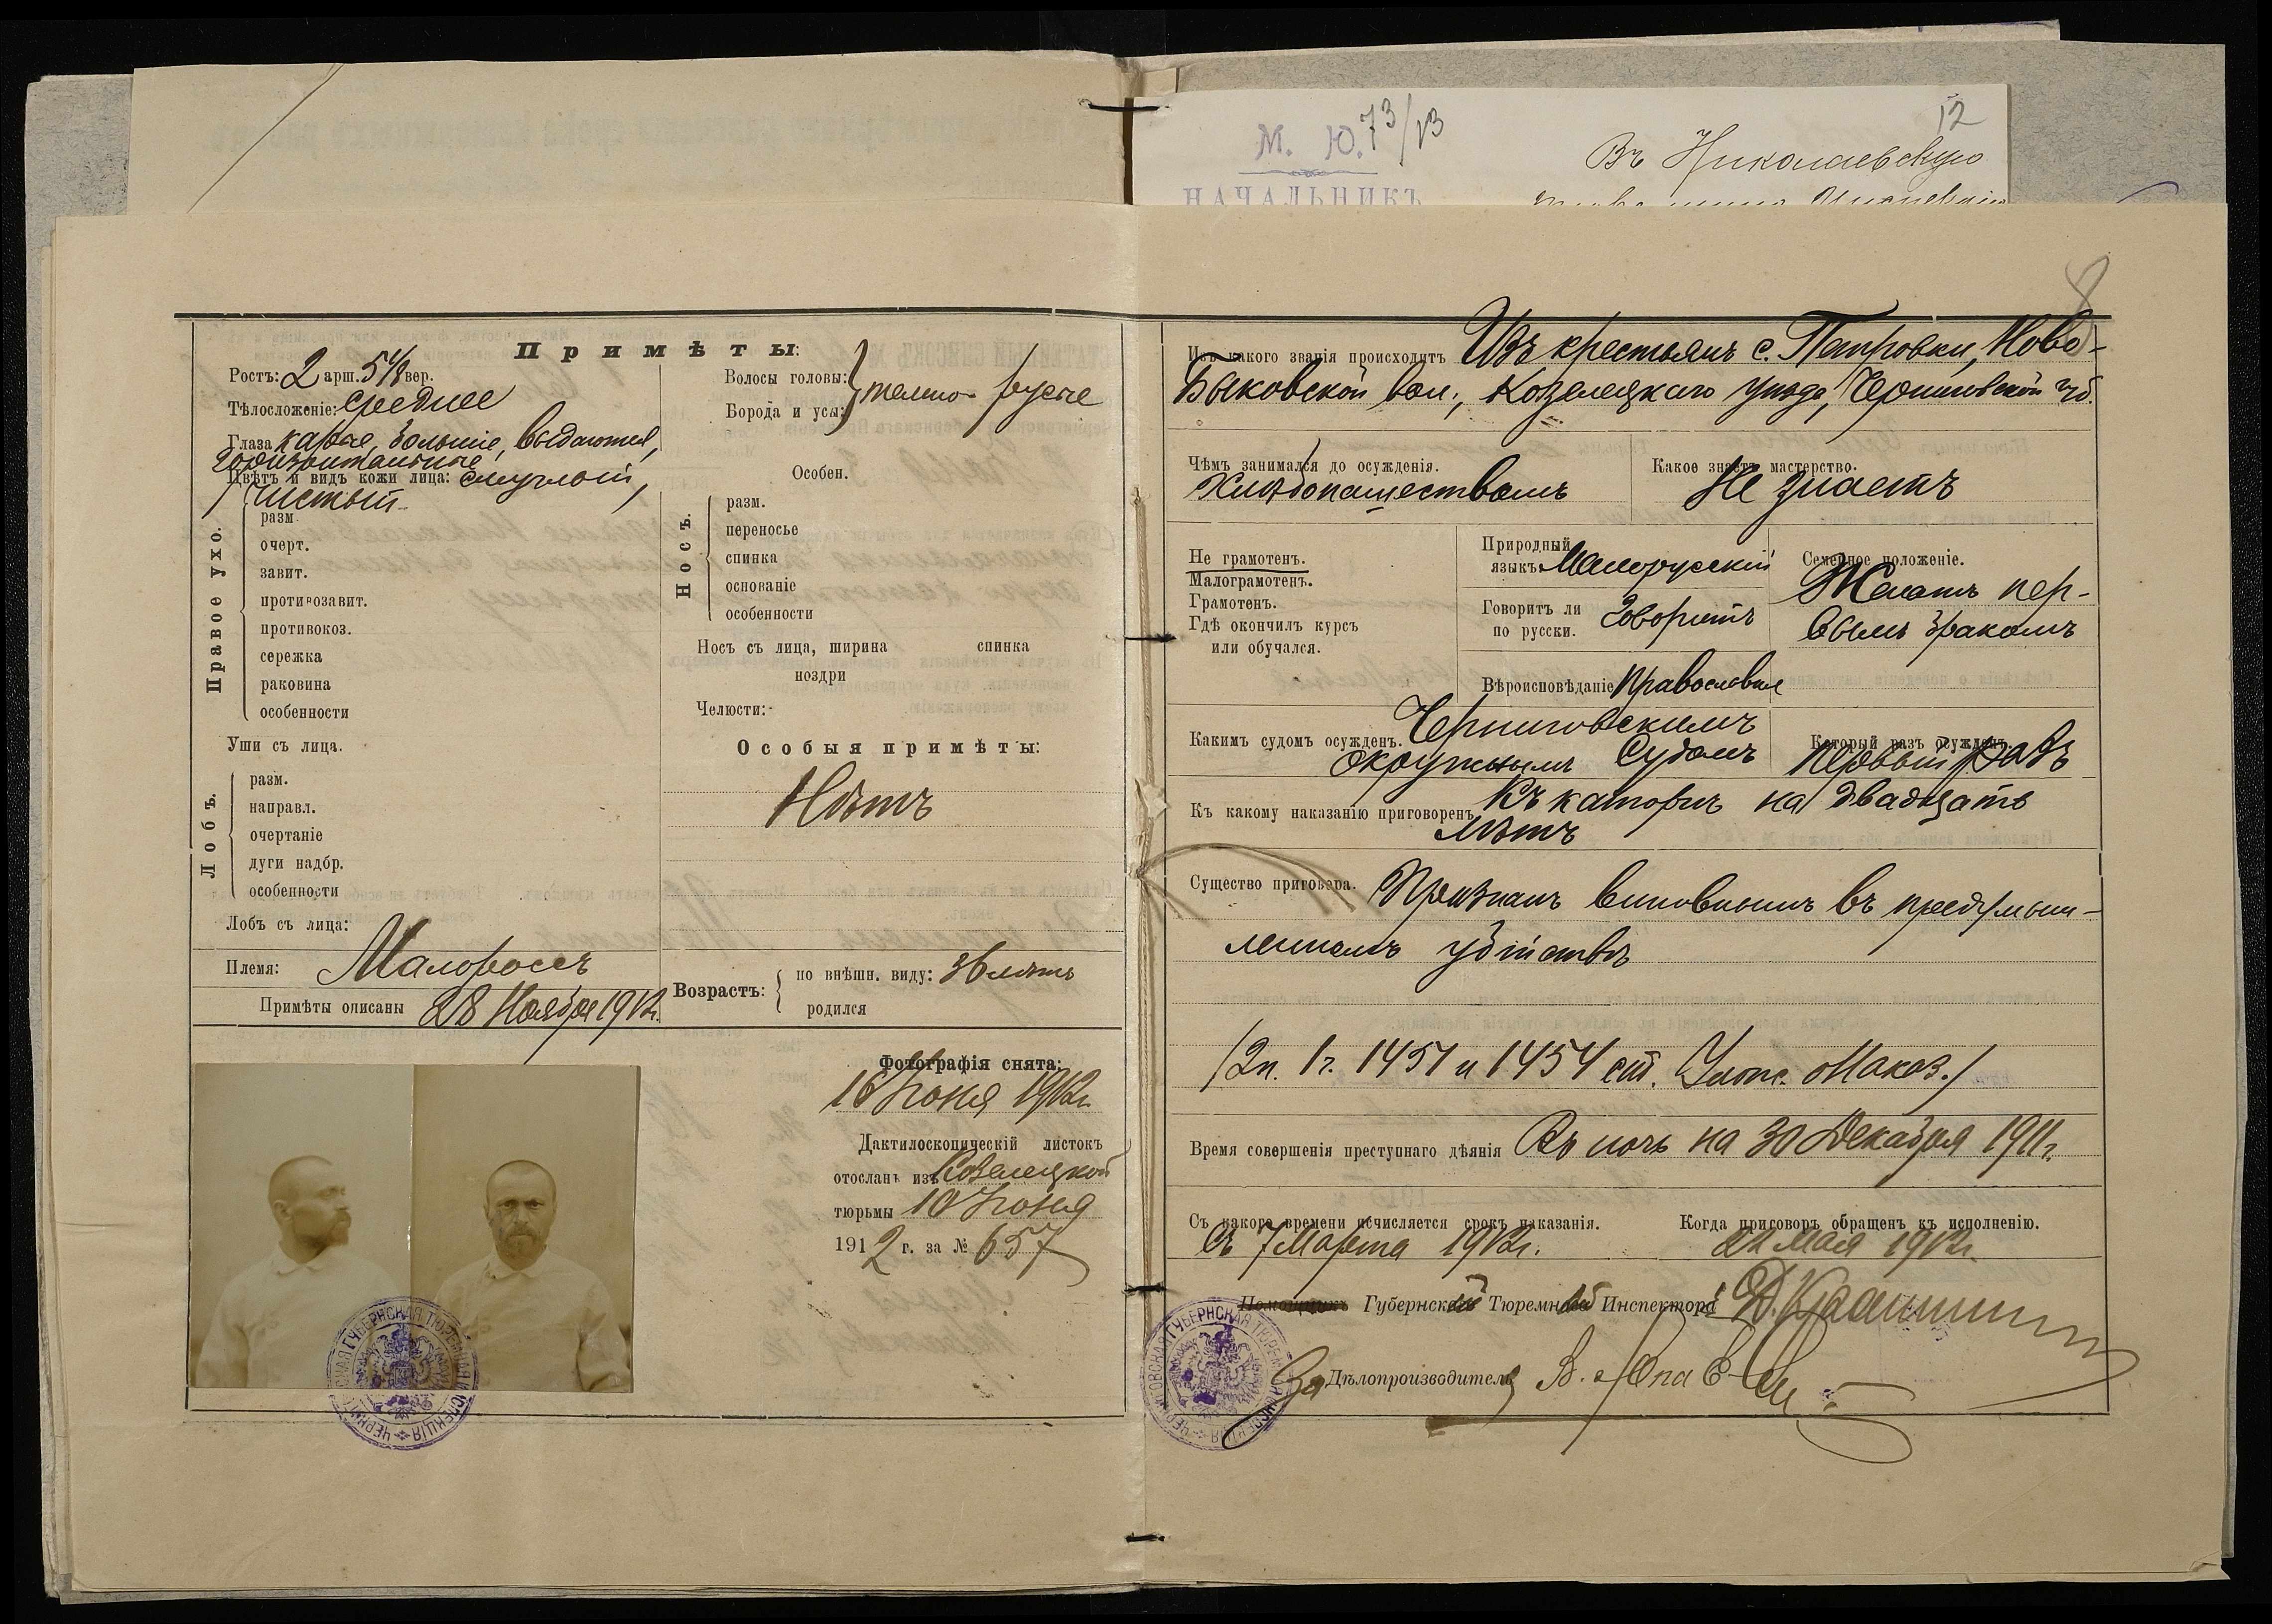 М. Ю. 73/13
12
Въ Николаевскую
НАЧАЛЬНИКЪ
8
Примѣты:
Ростъ: 2 арш. 5 4/8 вер.
Тѣлосложеніе: среднее
Глаза карые, большіе, выдаются,
горизонтальные
Цвѣтъ и видъ кожи лица: смуглый,
чистый
Правое ухо.
разм.
очерт.
завит.
противозавит.
противокоз.
сережка
раковина
особенности
Уши съ лица.
Лобъ.
разм.
направл.
очертаніе
дуги надбр.
особенности
Лобъ съ лица:
Племя: Малороссъ
Примѣты описаны 28 Ноября 1912 г.
Волосы головы:
Борода и усы:
темно-русые
Особен.
Носъ.
разм.
переносье
спинка
основаніе
особенности
Носъ съ лица, ширина спинка
ноздри
Челюсти:
Особыя примѣты:
Нѣтъ
Возрастъ:
по внѣшн. виду: 36 лѣтъ
родился
Фотографія снята:
10 Іюня 1912 г.
Дактилоскопическій листокъ
отосланъ изъ Козелецкой
тюрьмы 10 Іюня
1912 г. за № 657
ЧЕРНИГОВСКАЯ ГУБЕРНСКАЯ ТЮРЕМНАЯ ИНСПЕКЦІЯ
Изъ какого званія происходитъ Изъ крестьянъ с. Петровки, Ново-
Быковской вол., Козелецкаго уѣзда, Черниговской губ.
Чѣмъ занимался до осужденія.
Хлѣбопашествомъ
Какое знаетъ мастерство.
Не знаетъ
Не грамотенъ.
Малограмотенъ.
Грамотенъ.
Гдѣ окончилъ курсъ
или обучался.
Природный
языкъ Малорусскій
Говоритъ ли
по русски. Говоритъ
Вѣроисповѣданіе Православное
Семейное положеніе.
Женатъ пер-
вымъ бракомъ
Какимъ судомъ осужденъ. Черниговскимъ
Окружнымъ Судомъ
Который разъ осужденъ.
Первый разъ
Къ какому наказанію приговоренъ Къ каторгѣ на двадцать
лѣтъ
Существо приговора. Признанъ виновнымъ въ предумыш-
ленномъ убійствѣ
/2 п. 1 ч. 1451 и 1454 ст. Улож. о Наказ./
Время совершенія преступнаго дѣянія Въ ночь на 30 Декабря 1911 г.
Съ какого времени исчисляется срокъ наказанія.
Съ 7 Марта 1912 г.
Когда приговоръ обращенъ къ исполненію.
22 Мая 1912 г.
Помощникъ Губернскій Тюремный Инспекторъ
За Дѣлопроизводителя
ЧЕРНИГОВСКАЯ ГУБЕРНСКАЯ ТЮРЕМНАЯ ИНСПЕКЦІЯ